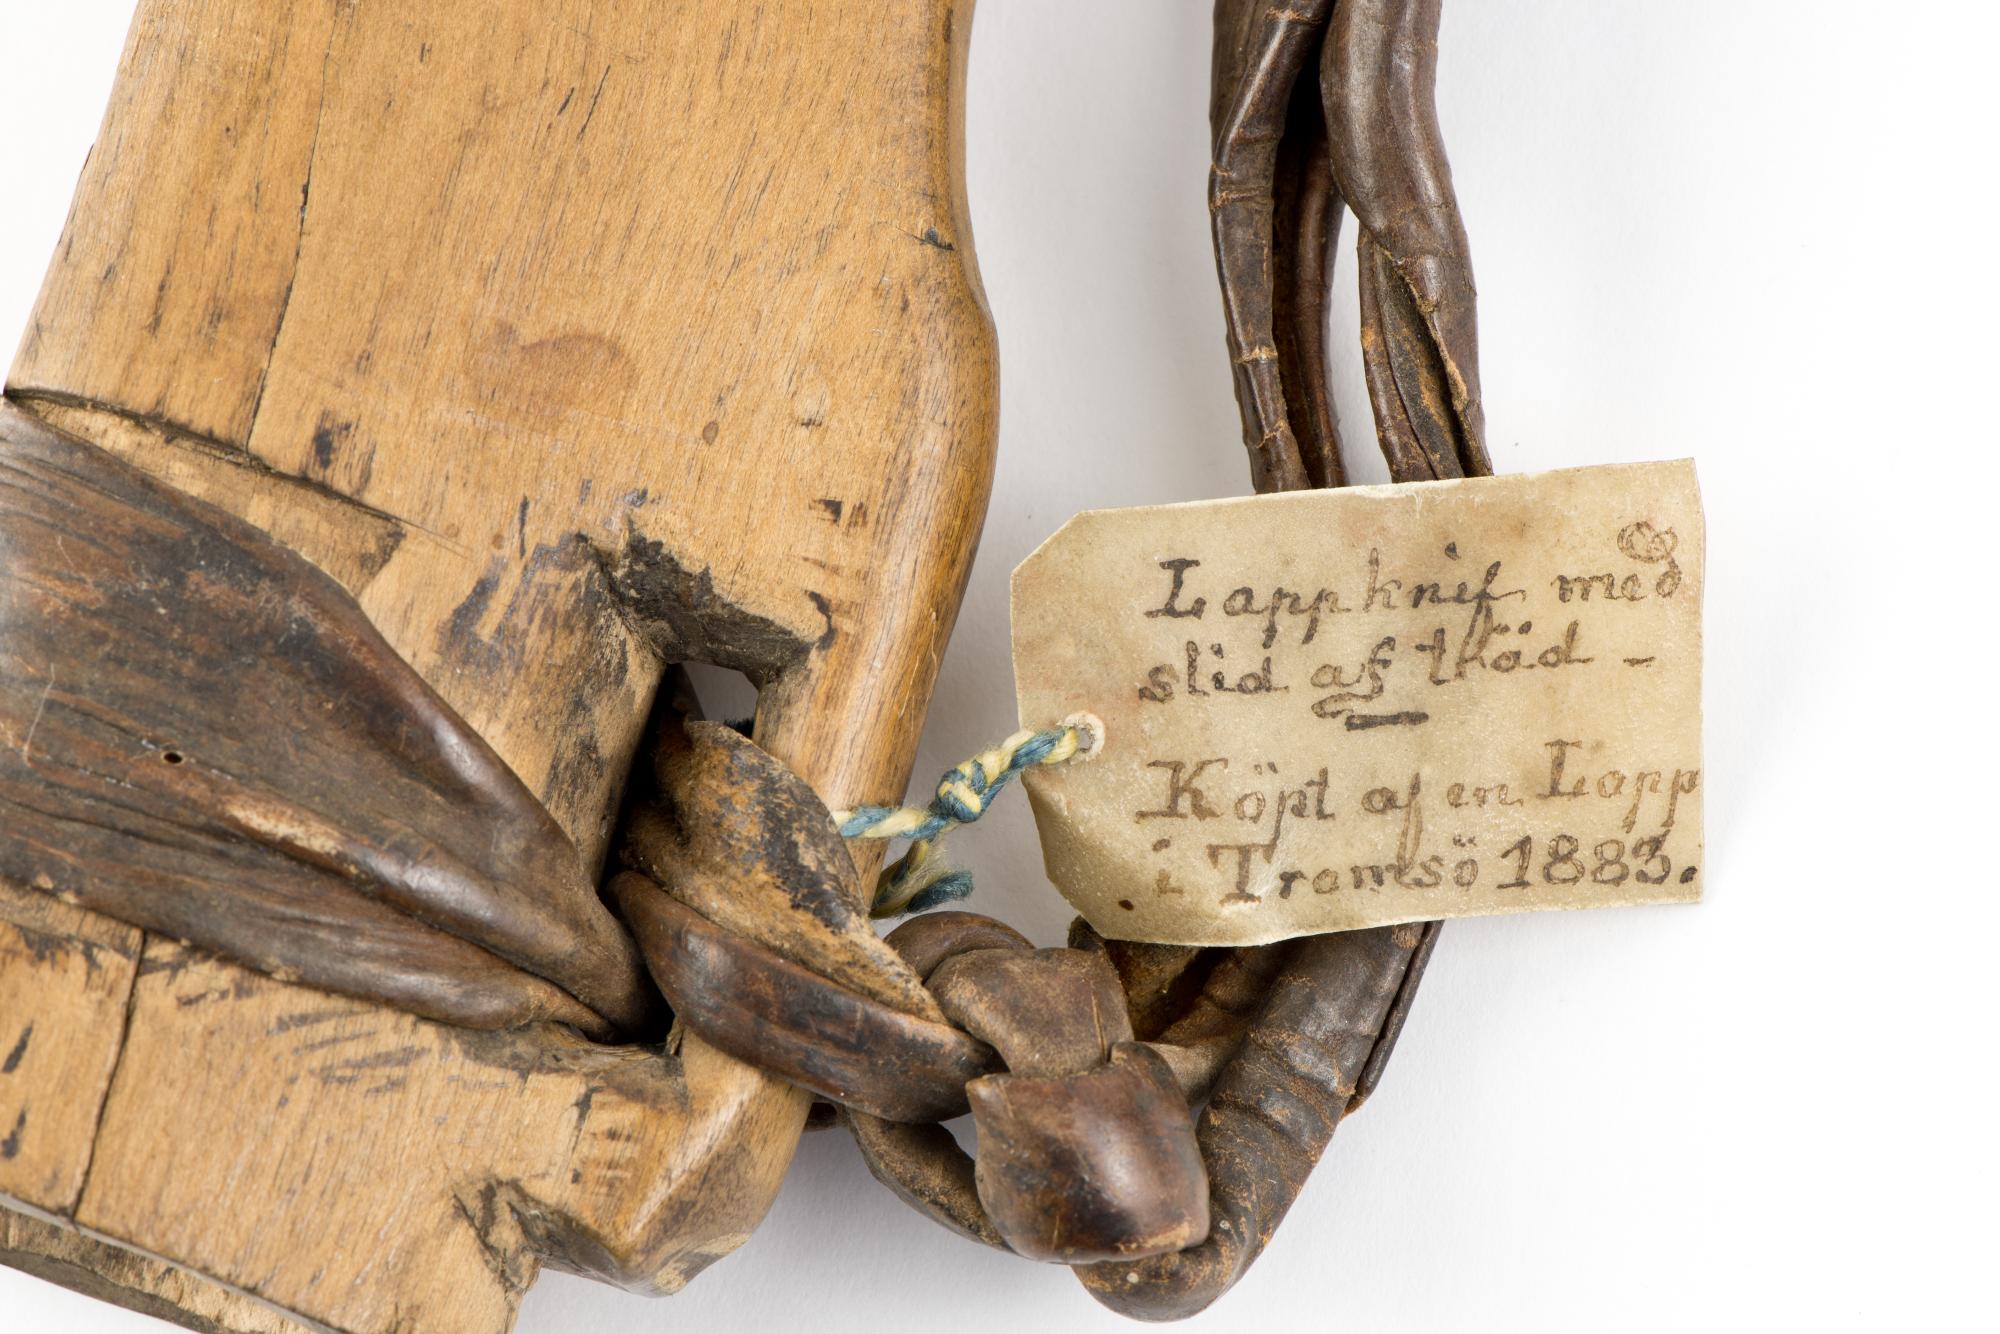 Lappknif med
slid af träd -
Köpt af en Lapp
i Tromsö 1883.